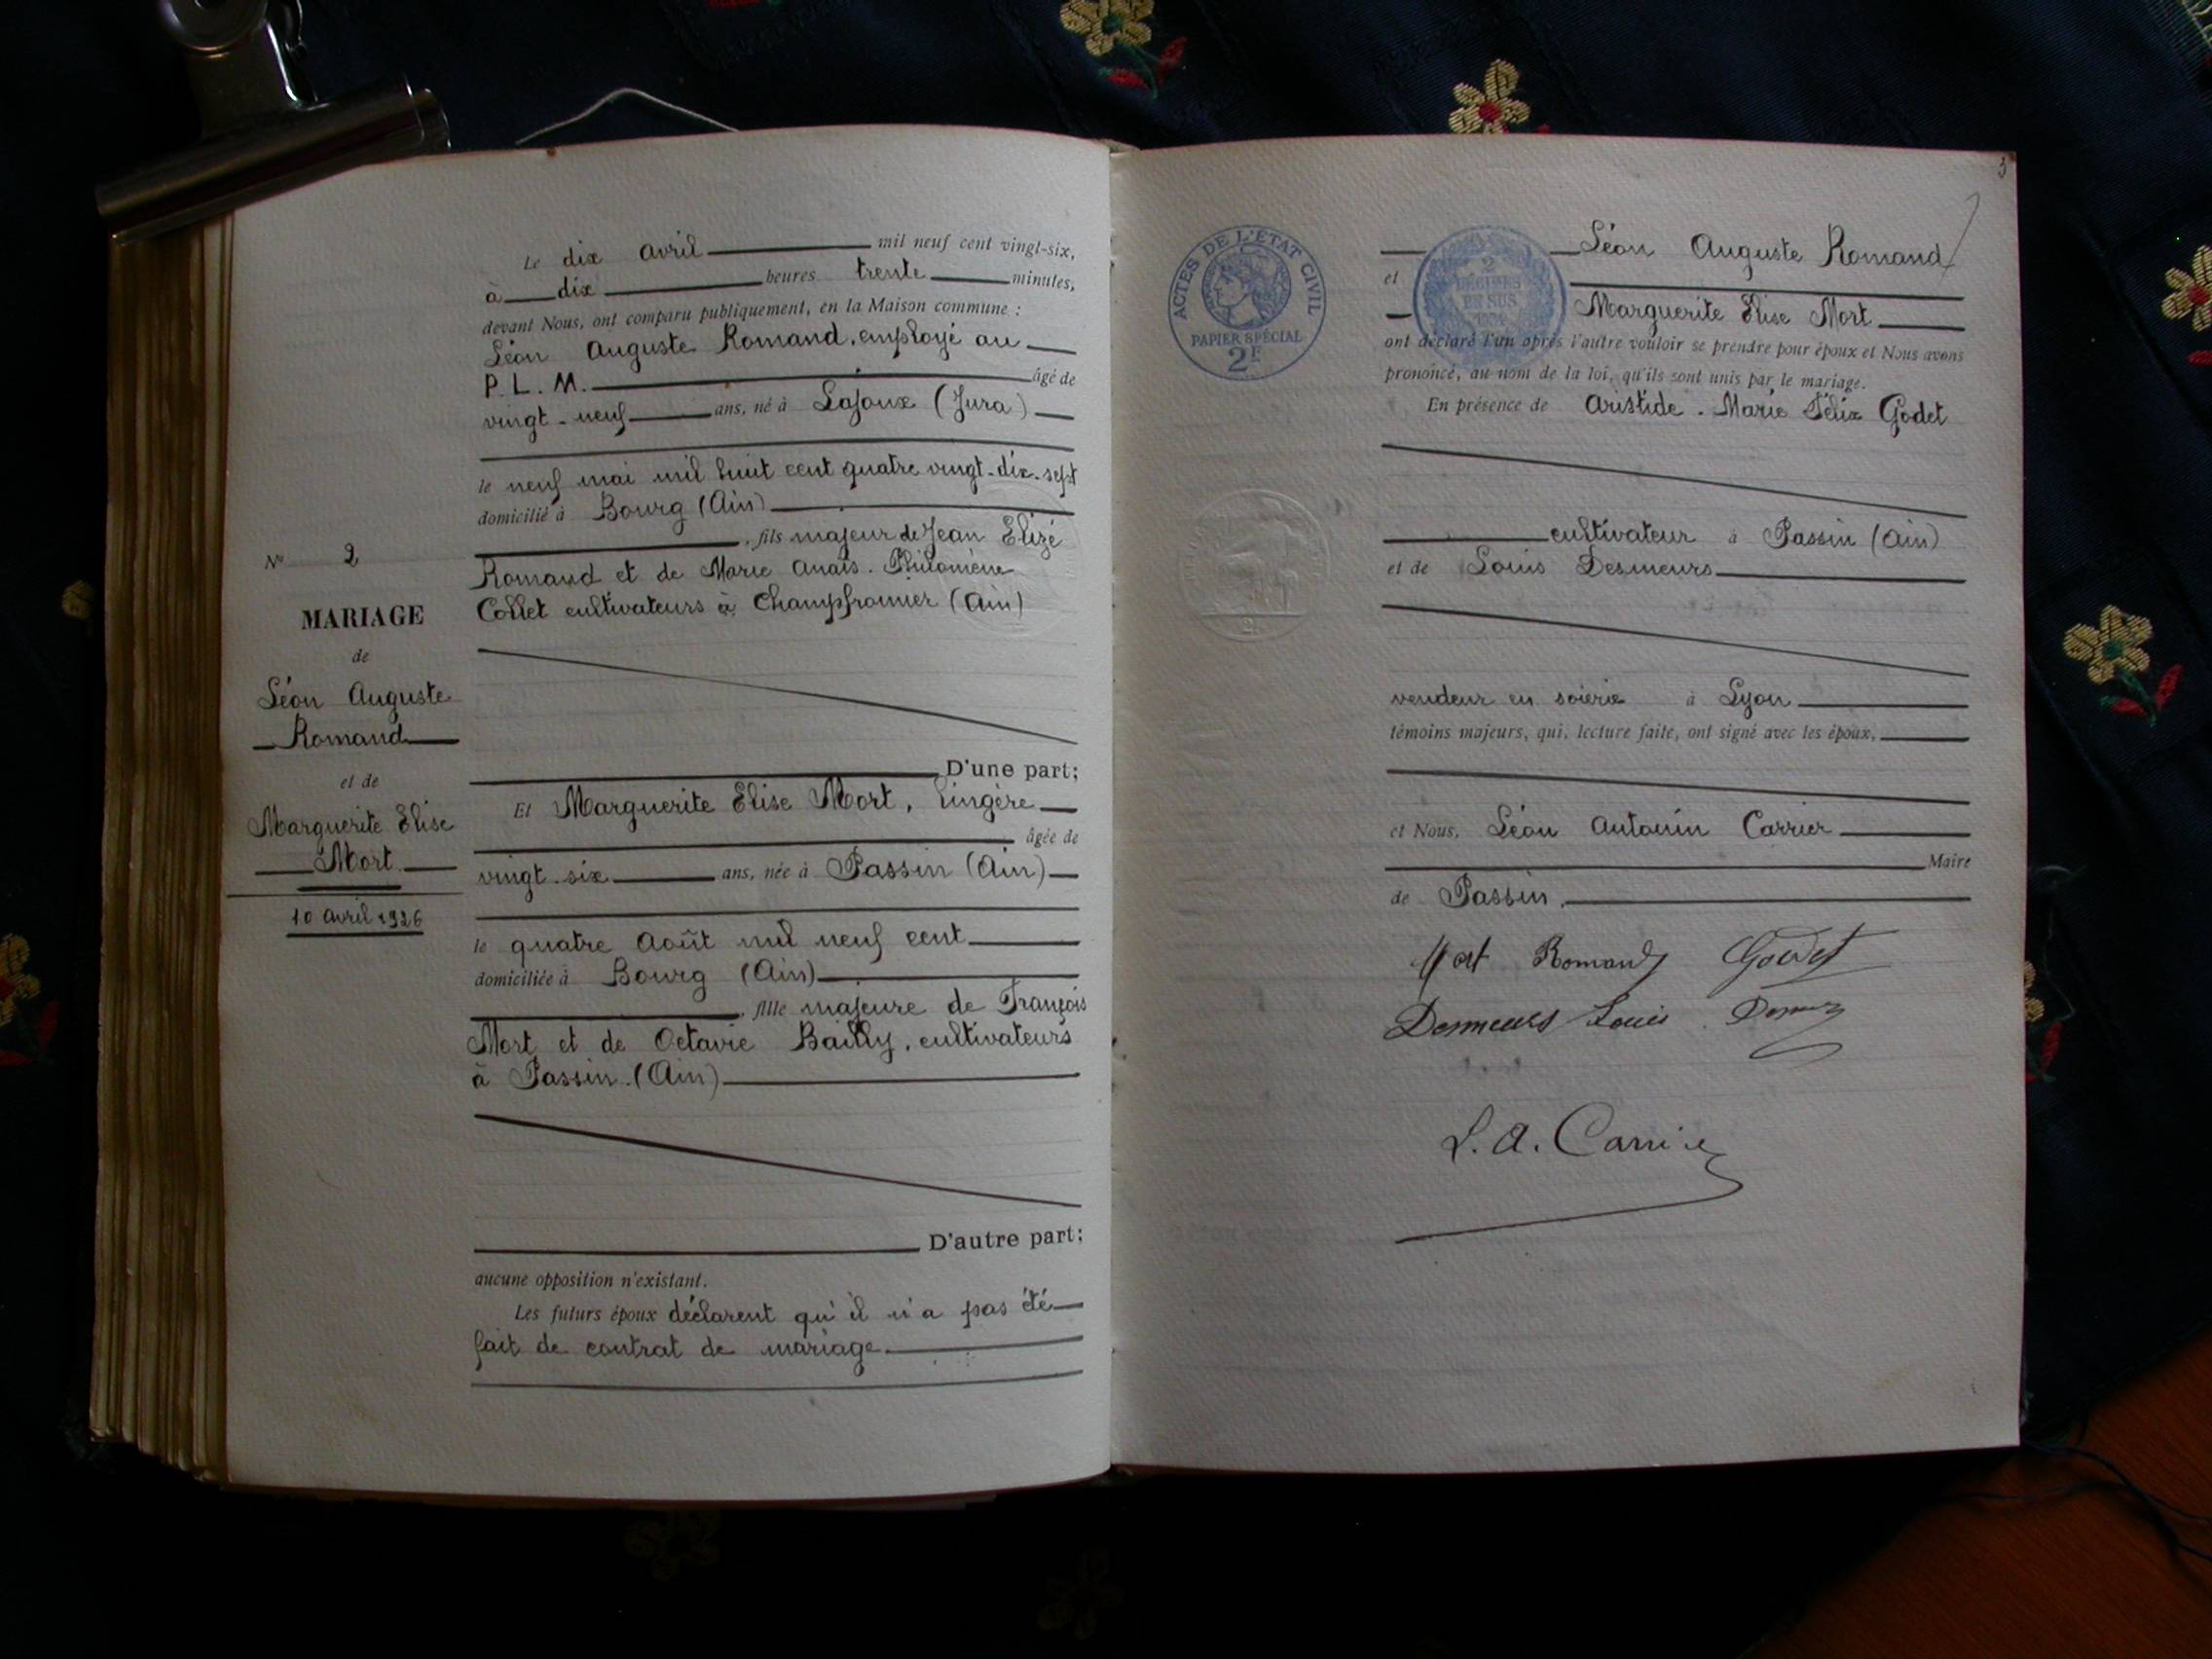 Le dix avril mil neuf cent vingt-six,
à dix heures trente minutes,
devant Nous, ont comparu publiquement, en la Maison commune :
Léon Auguste Romand, employé au
P. L. M. âgé de
vingt-neuf ans, né à Lajoux (Jura)
le neuf mai mil huit cent quatre vingt-dix-sept
domicilié à Bourg (Ain)
, fils majeur de Jean Elizé
Romand et de Marie Anaïs Philomène
Collet cultivateurs à Champfromier (Ain)
D'une part;
Et Marguerite Elise Mort, lingère
âgée de
vingt-six ans, née à Passin (Ain)
le quatre Août mil neuf cent
domiciliée à Bourg (Ain)
, fille majeure de François
Mort et de Octavie Bailly, cultivateurs
à Passin (Ain)
D'autre part;
aucune opposition n'existant.
Les futurs époux déclarent qu'il n'a pas été
fait de contrat de mariage.
N° 2
MARIAGE
de
Léon Auguste
Romand
et de
Marguerite Elise
Mort
10 avril 1926
3
ACTES DE L'ÉTAT CIVIL
PAPIER SPÉCIAL
2F
2
DÉCIMES
EN SUS
Léon Auguste Romand
et
Marguerite Elise Mort
ont déclaré l'un après l'autre vouloir se prendre pour époux et Nous avons
prononcé, au nom de la loi, qu'ils sont unis par le mariage.
En présence de Aristide. Marie Félix Godet
cultivateur à Passin (Ain)
et de Louis Desmeurs
vendeur en soierie à Lyon
témoins majeurs, qui, lecture faite, ont signé avec les époux,
et Nous, Léon Antonin Carrier
Maire
de Passin.
Mort Romand Godet
Desmeurs Louis
L. A. Carrier